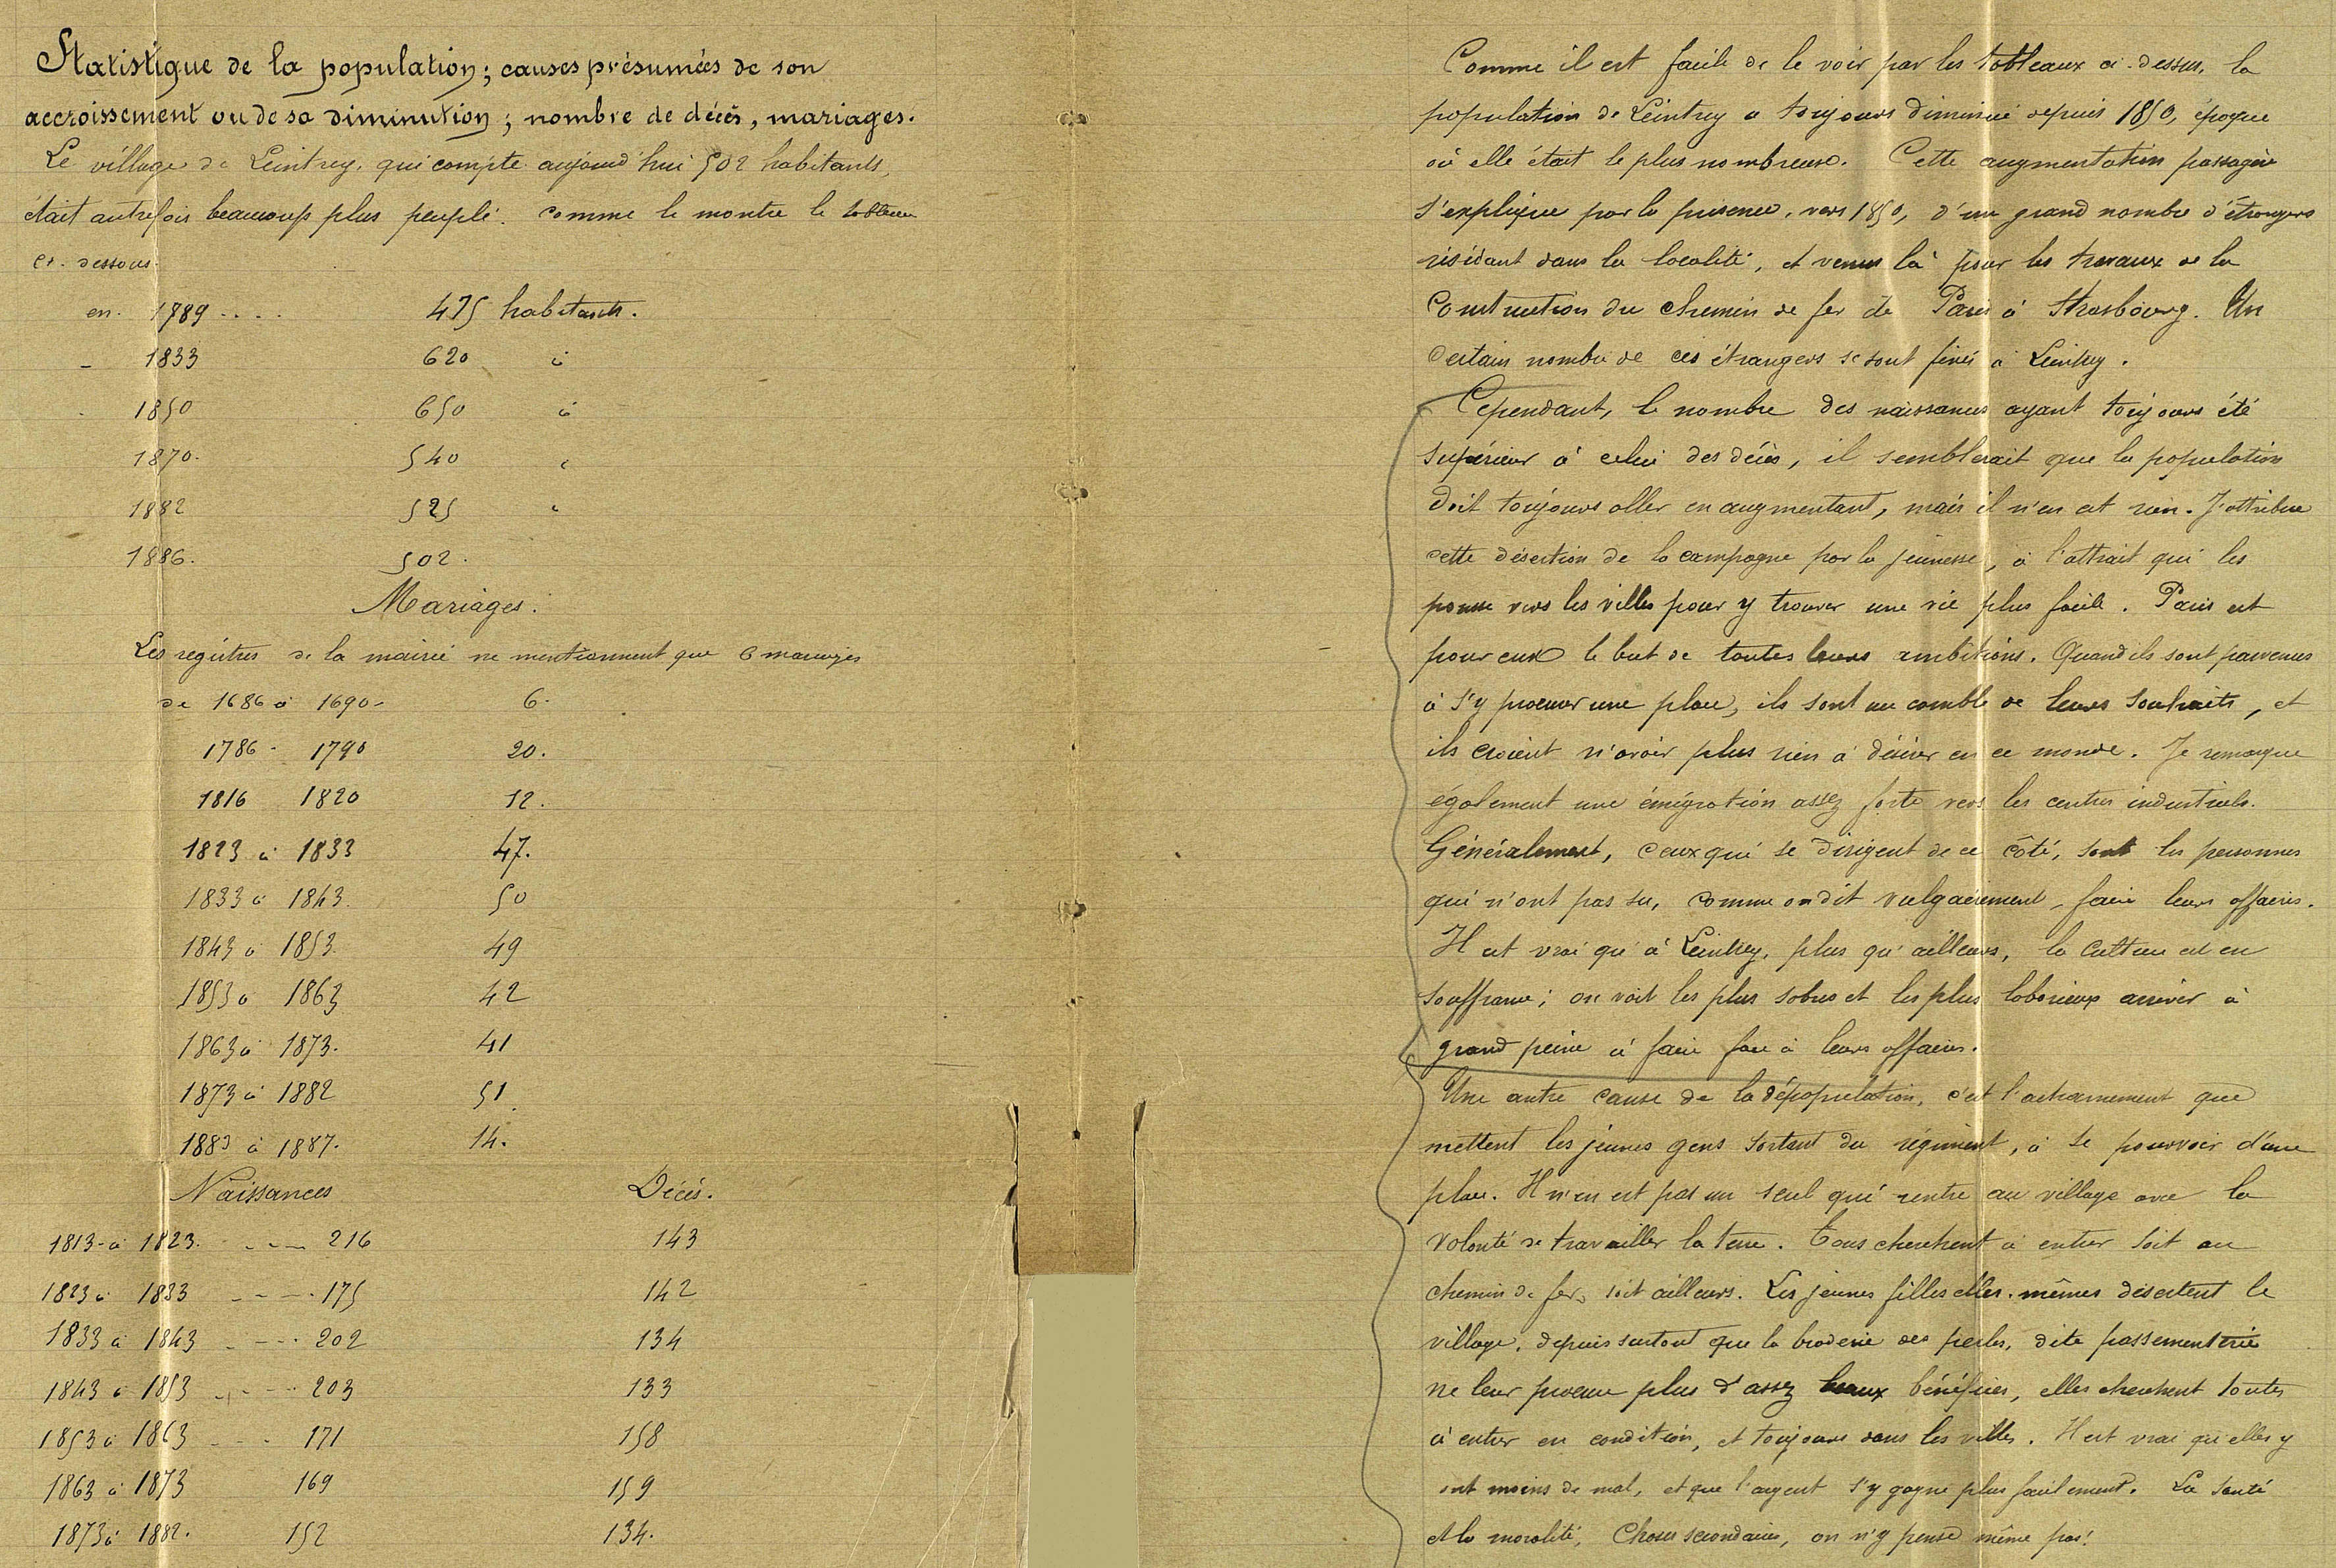 Statistique de la population; causes présumées de son
accroissement ou de sa diminution; nombre de décès, mariages.
Le village de Leintrey, qui compte aujourd'hui 502 habitants,
était autrefois beaucoup plus peuplé. comme le montre le tableau
ci-dessous.
en 1789 .... 475 habitants.
- 1833 620 à
1850 650 à
1870. 540 "
1882 525 "
1886. 502.
Mariages.
Les registres de la mairie ne mentionnent que 6 mariages
de 1686 à 1690- 6.
1786 - 1790 20.
1816 1820 12.
1823 à 1833 47.
1833 à 1843. 50
1843 à 1853. 49
1853 à 1863 42
1863 à 1873. 41
1873 à 1882 51.
1883 à 1887. 14.
Naissances Décès.
1813 à 1823. --- 216 143
1823 à 1833 --- 175 142
1833 à 1843 --- 202 134
1843 à 1853 --- 203 133
1853 à 1863 --- 171 158
1863 à 1873 169 159
1873 à 1882. 152 134.
Comme il est facile de le voir par les tableaux ci-dessus, la
population de Leintrey a toujours diminué depuis 1850, époque
où elle était le plus nombreuse. Cette augmentation passagère
s'explique par la présence, vers 1850, d'un grand nombre d'étrangers
résidant dans la localité, et venus là pour les travaux de la
construction du chemin de fer de Paris à Strasbourg. Un
certain nombre de ces étrangers se sont fixés à Leintrey.
Cependant, le nombre des naissances ayant toujours été
supérieur à celui des décès, il semblerait que la population
doit toujours aller en augmentant, mais il n'en est rien. J'attribue
cette désertion de la campagne par la jeunesse, à l'attrait qui les
pousse vers les villes pour y trouver une vie plus facile. Paris est
pour eux le but de toutes leurs ambitions. Quand ils sont parvenus
à s'y procurer une place, ils sont au comble de leurs souhaits, et
ils croient n'avoir plus rien à désirer en ce monde. Je remarque
également une émigration assez forte vers les centres industriels.
Généralement, ceux qui se dirigent de ce côté, sont les personnes
qui n'ont pas su, comme on dit vulgairement, faire leurs affaires.
Il est vrai qu'à Leintrey, plus qu'ailleurs, la culture est en
souffrance; on voit les plus sobres et les plus laborieux arriver à
grand peine à faire face à leurs affaires.
Une autre cause de la dépopulation, c'est l'acharnement que
mettent les jeunes gens sortant du régiment, à se pourvoir d'une
place. Il n'en est pas un seul qui rentre au village avec la
volonté de travailler la terre. Tous cherchent à entrer soit au
chemin de fer, soit ailleurs. Les jeunes filles elles-mêmes désertent le
village, depuis surtout que la broderie des perles, dite passementerie
ne leur procure plus d'assez beaux bénéfices, elles cherchent toutes
à entrer en condition, et toujours dans les villes. Il est vrai qu'elles y
ont moins de mal, et que l'argent s'y gagne plus facilement. La santé
et la moralité, choses secondaires, on n'y pense même pas!